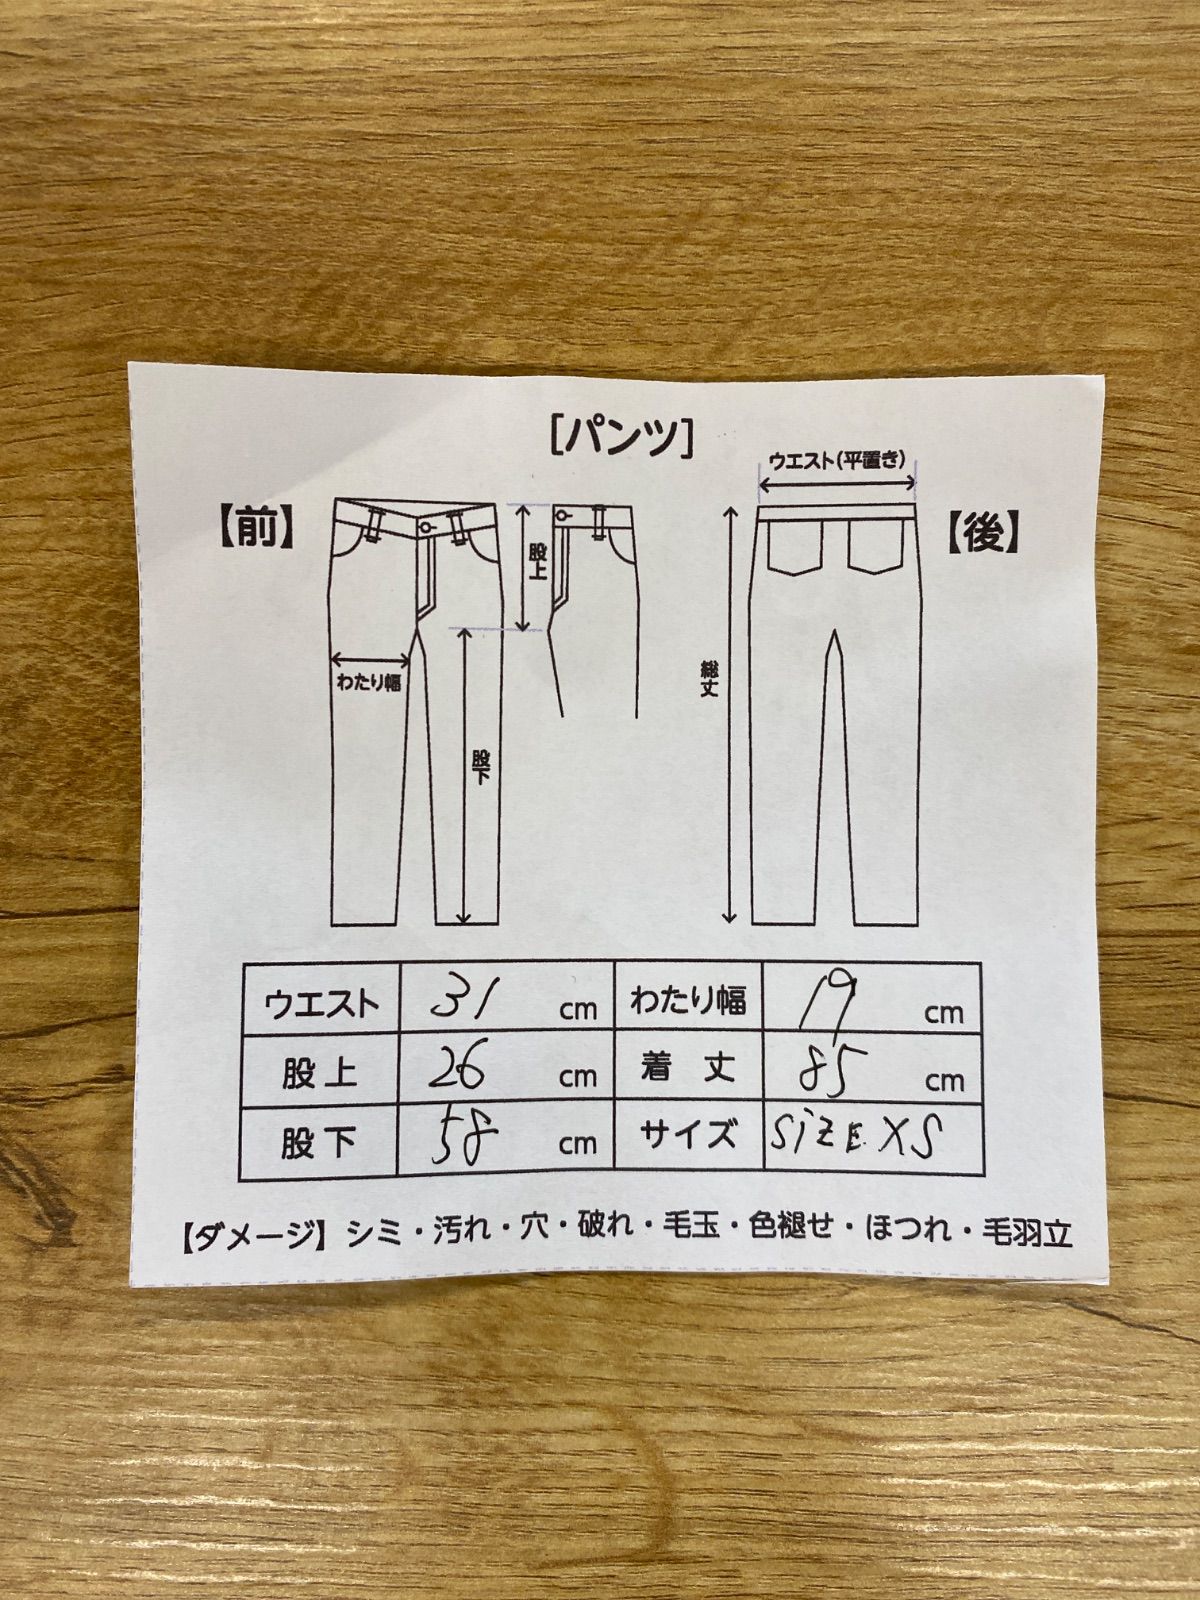 [パンツ]
ウエスト(平置き)
【前】
【後】
股上
わたり幅
総丈
股下
ウエスト 31 cm わたり幅 19 cm
股上 26 cm 着丈 85 cm
股下 58 cm サイズ SiZE XS
【ダメージ】シミ・汚れ・穴・破れ・毛玉・色褪せ・ほつれ・毛羽立